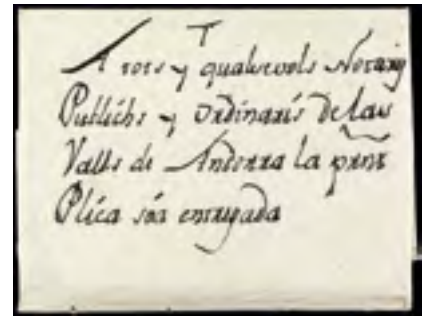 A tots y qualsevols Notaris
Publichs y ordinaris de las
Valls de Andorra la pnt
Plica sia entregada